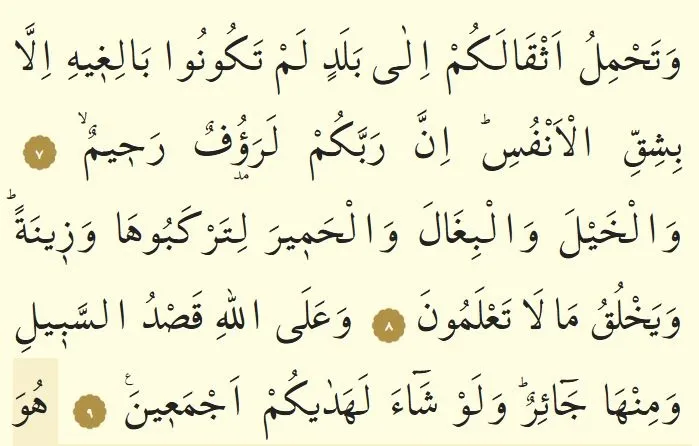 وَتَحْمِلُ اَثْقَالَكُمْ اِلٰى بَلَدٍ لَمْ تَكُونُوا بَالِغ۪يهِ اِلَّا
بِشِقِّ الْاَنْفُسِۜ اِنَّ رَبَّكُمْ لَرَؤُ۫فٌ رَح۪يمٌۙ ٧
وَالْخَيْلَ وَالْبِغَالَ وَالْحَم۪يرَ لِتَرْكَبُوهَا وَز۪ينَةًۜ
وَيَخْلُقُ مَا لَا تَعْلَمُونَ ٨ وَعَلَى اللّٰهِ قَصْدُ السَّب۪يلِ
وَمِنْهَا جَٓائِرٌۜ وَلَوْ شَٓاءَ لَهَدٰيكُمْ اَجْمَع۪ينَ۟ ٩ هُوَ